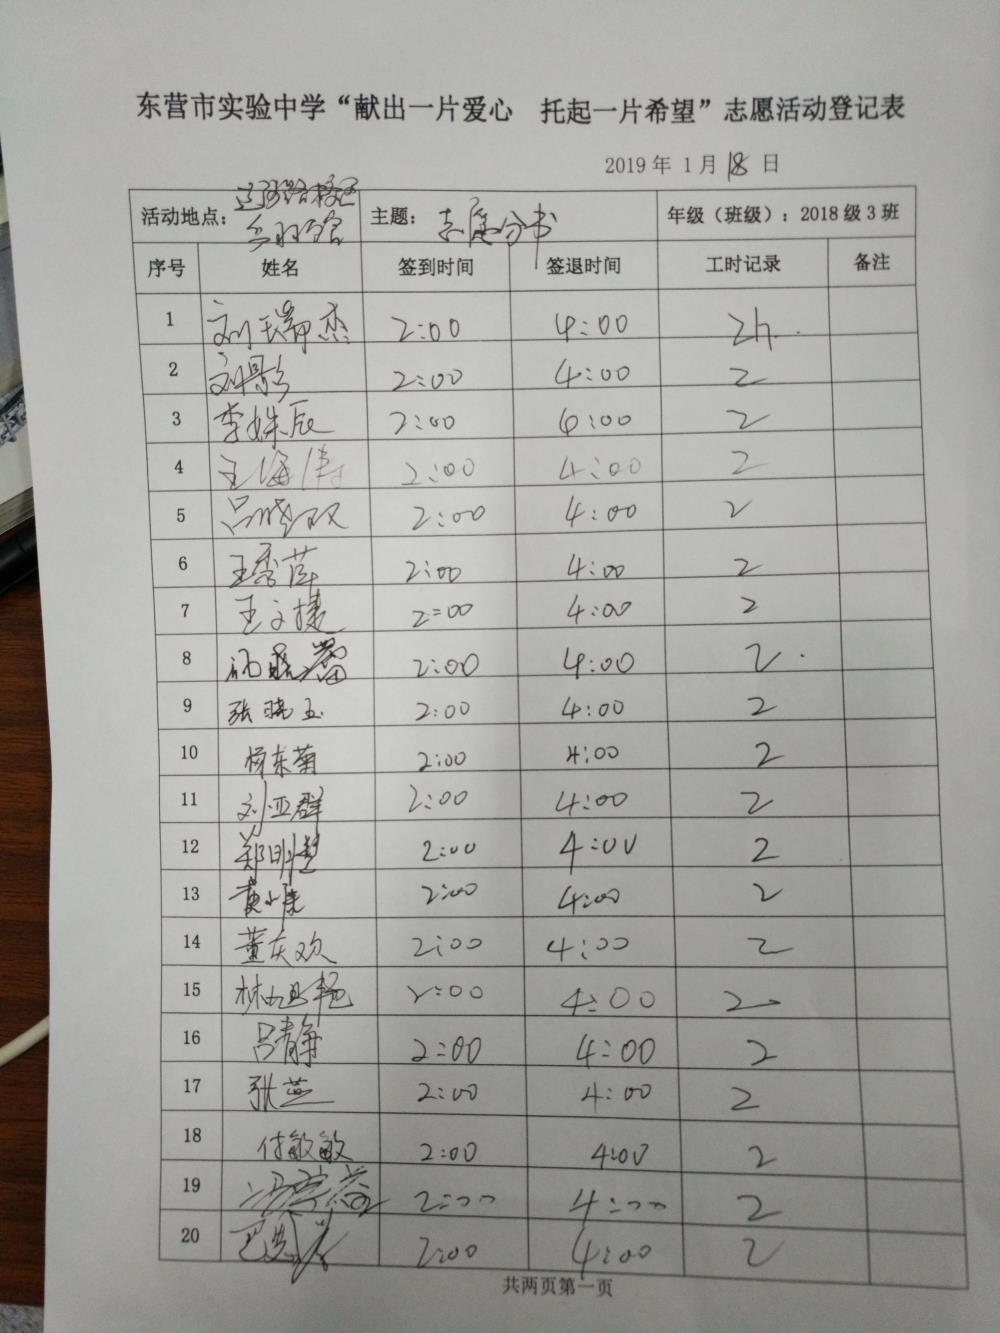 东营市实验中学“献出一片爱心 托起一片希望”志愿活动登记表
2019 年 1 月 18 日
活动地点: 辽河路校区 主题: 志愿分书 年级（班级）: 2018 级 3 班
乒羽馆
序号 姓名 签到时间 签退时间 工时记录 备注
1 刘瑞杰 2:00 4:00 2h.
2 刘影 2:00 4:00 2
3 李姝辰 2:00 4:00 2
4 王海涛 2:00 4:00 2
5 吕晓双 2:00 4:00 2
6 王秀萍 2:00 4:00 2
7 王文捷 2:00 4:00 2
8 2:00 4:00 2
9 张晓玉 2:00 4:00 2
10 杨东菊 2:00 4:00 2
11 刘亚群 2:00 4:00 2
12 郑明慧 2:00 4:00 2
13 2:00 4:00 2
14 董庆欢 2:00 4:00 2
15 林旭艳 2:00 4:00 2
16 吕静 2:00 4:00 2
17 张燕 2:00 4:00 2
18 付敏敏 2:00 4:00 2
19 2:00 4:00 2
20 2:00 4:00 2
共两页第一页